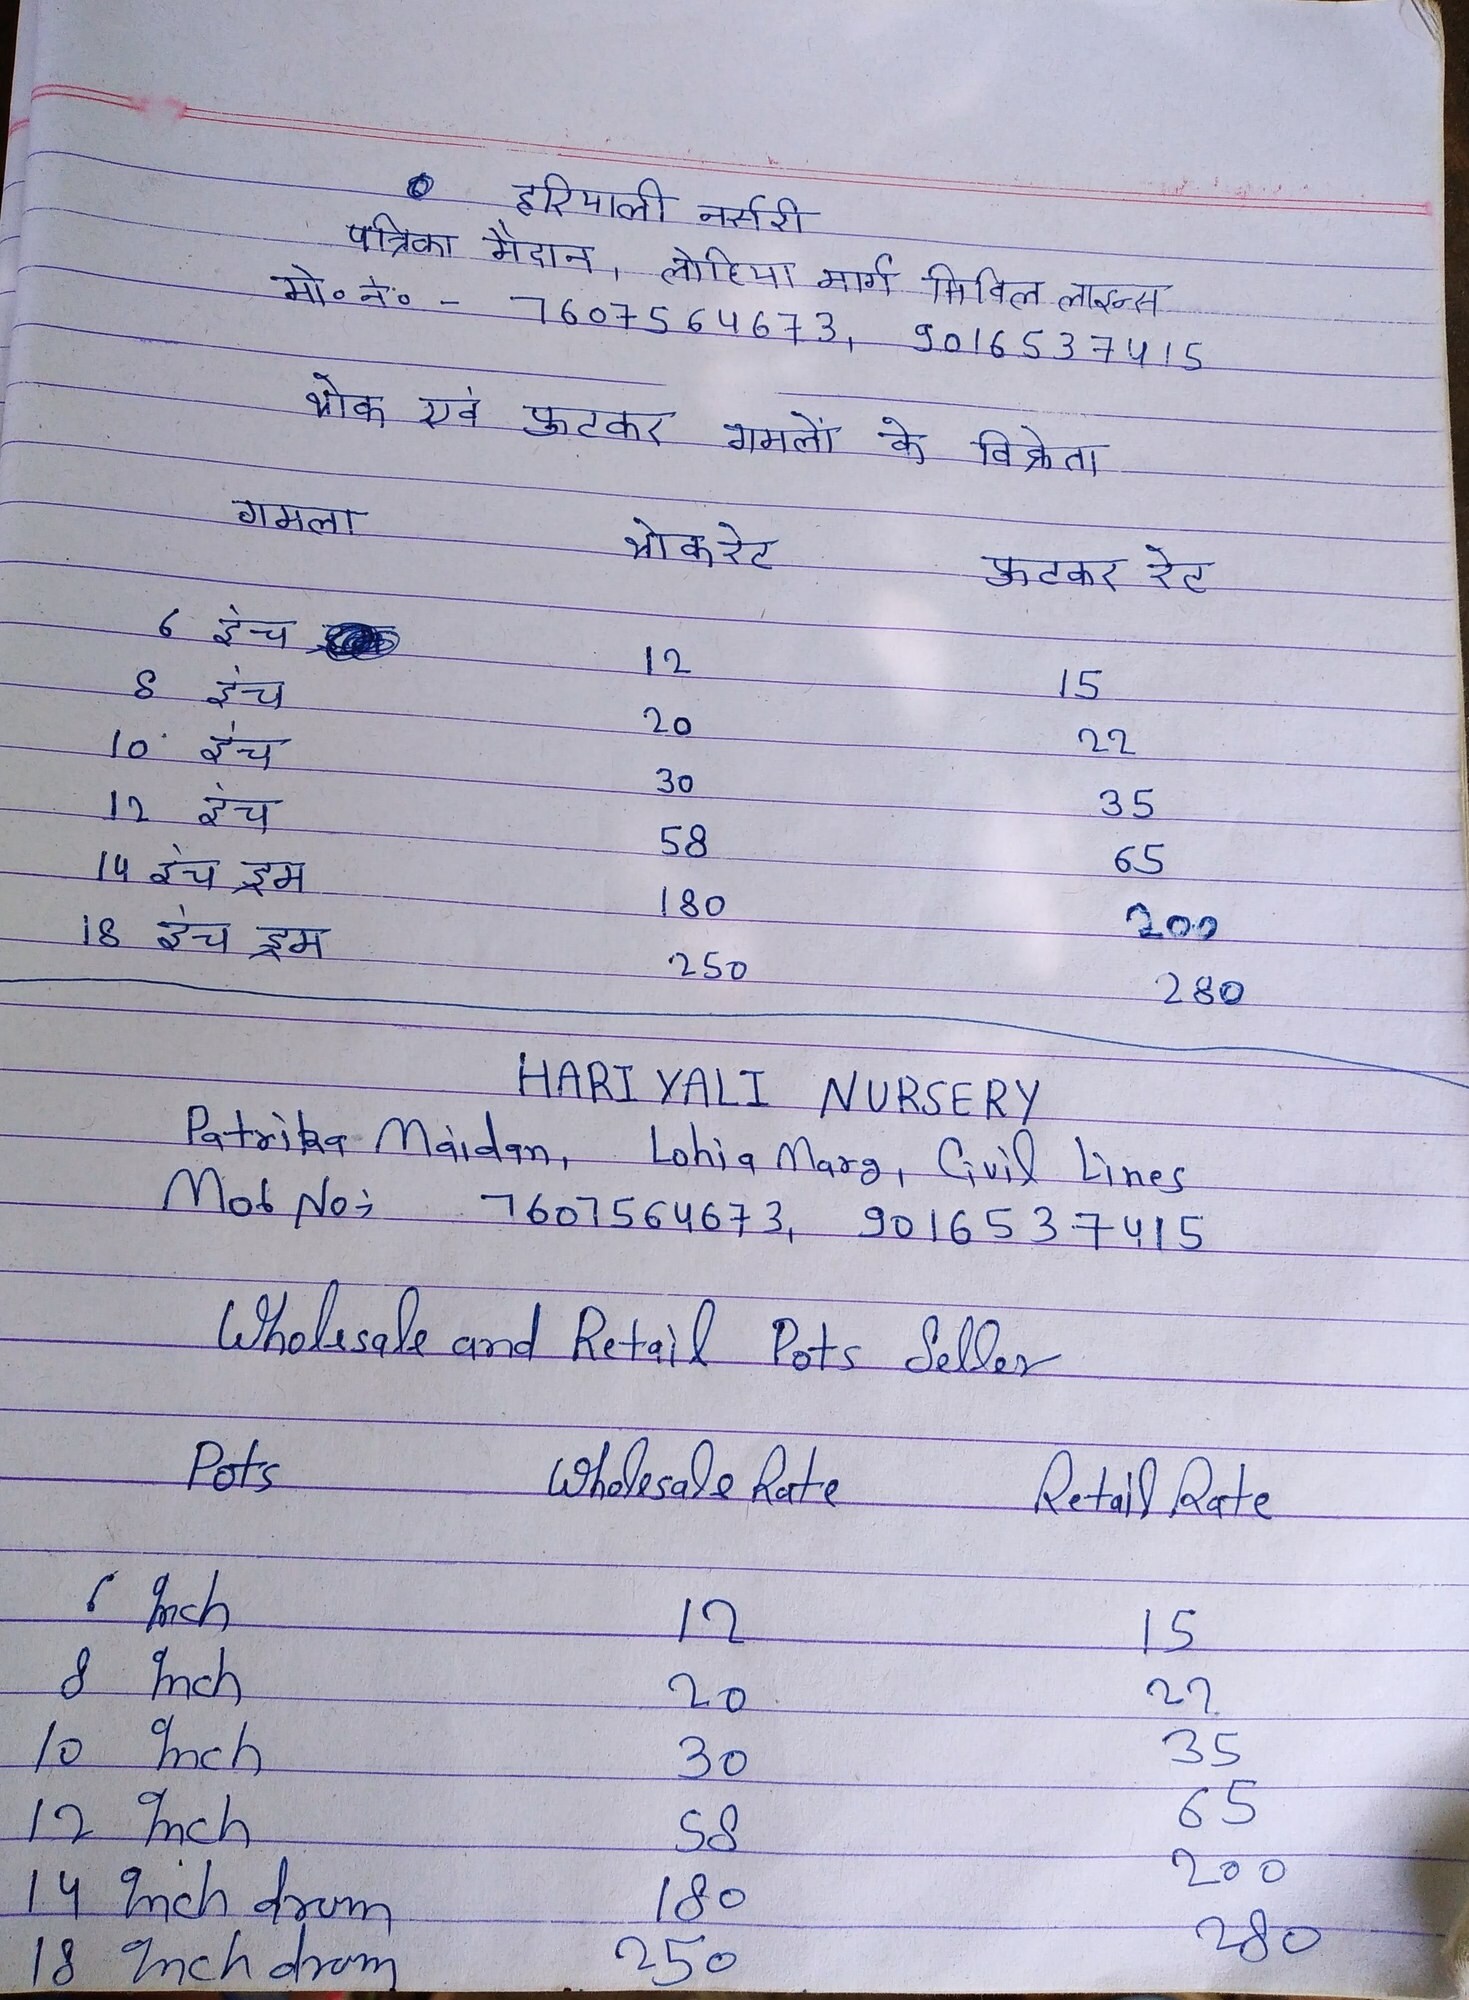 हरियाली नर्सरी
पत्रिका मैदान, लोहिया मार्ग सिविल लाइन्स
मो० नं० - 7607564673, 9016537415
थोक एवं फुटकर गमलों के विक्रेता
गमला थोक रेट फुटकर रेट
6 इंच 12 15
8 इंच 20 22
10 इंच 30 35
12 इंच 58 65
14 इंच ड्रम 180 200
18 इंच ड्रम 250 280
HARIYALI NURSERY
Patrika Maidan, Lohia Marg, Civil Lines
Mob No:- 7607564673, 9016537415
Wholesale and Retail Pots Seller
Pots Wholesale Rate Retail Rate
6 Inch 12 15
8 Inch 20 22
10 Inch 30 35
12 Inch 58 65
14 Inch drum 180 200
18 Inch drum 250 280